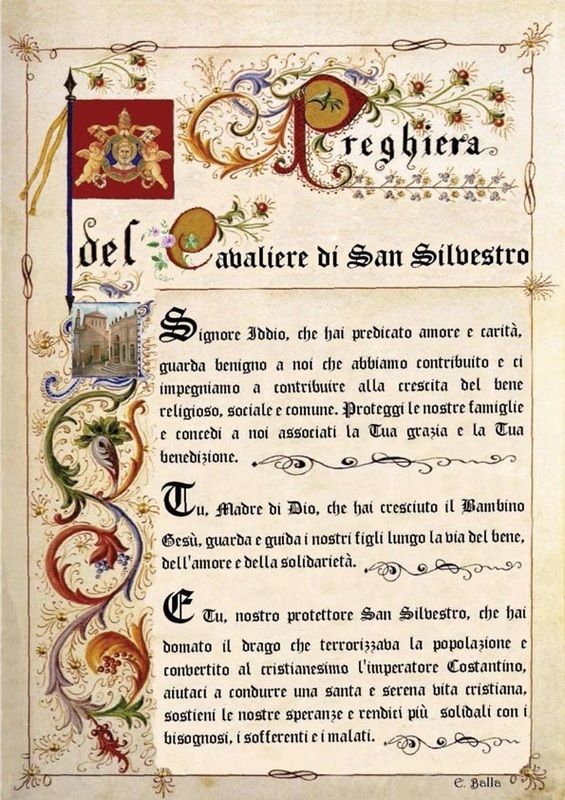 Preghiera
del Cavaliere di San Silvestro
Signore Iddio, che hai predicato amore e carità,
guarda benigno a noi che abbiamo contribuito e ci
impegniamo a contribuire alla crescita del bene
religioso, sociale e comune. Proteggi le nostre famiglie
e concedi a noi associati la Tua grazia e la Tua
benedizione.
Tu, Madre di Dio, che hai cresciuto il Bambino
Gesù, guarda e guida i nostri figli lungo la via del bene,
dell'amore e della solidarietà.
E Tu, nostro protettore San Silvestro, che hai
domato il drago che terrorizzava la popolazione e
convertito al cristianesimo l'imperatore Costantino,
aiutaci a condurre una santa e serena vita cristiana,
sostieni le nostre speranze e rendici più solidali con i
bisognosi, i sofferenti e i malati.
E. Balla